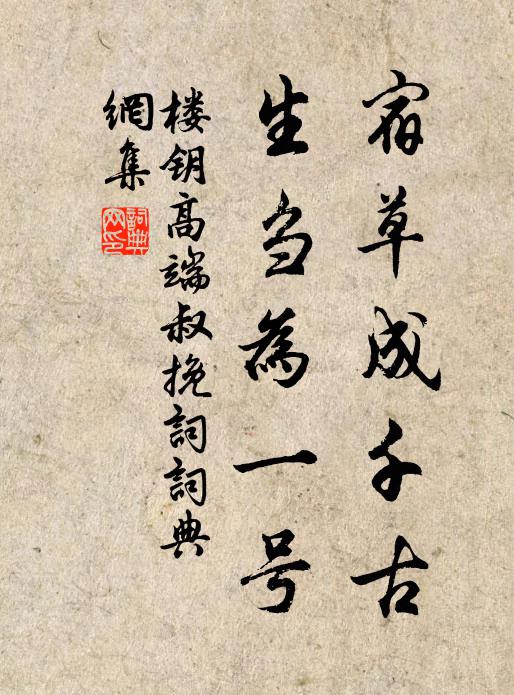 宿草成千古
生刍為一号
楼钥高端叔挽詞詞典
網集
詞典
网印